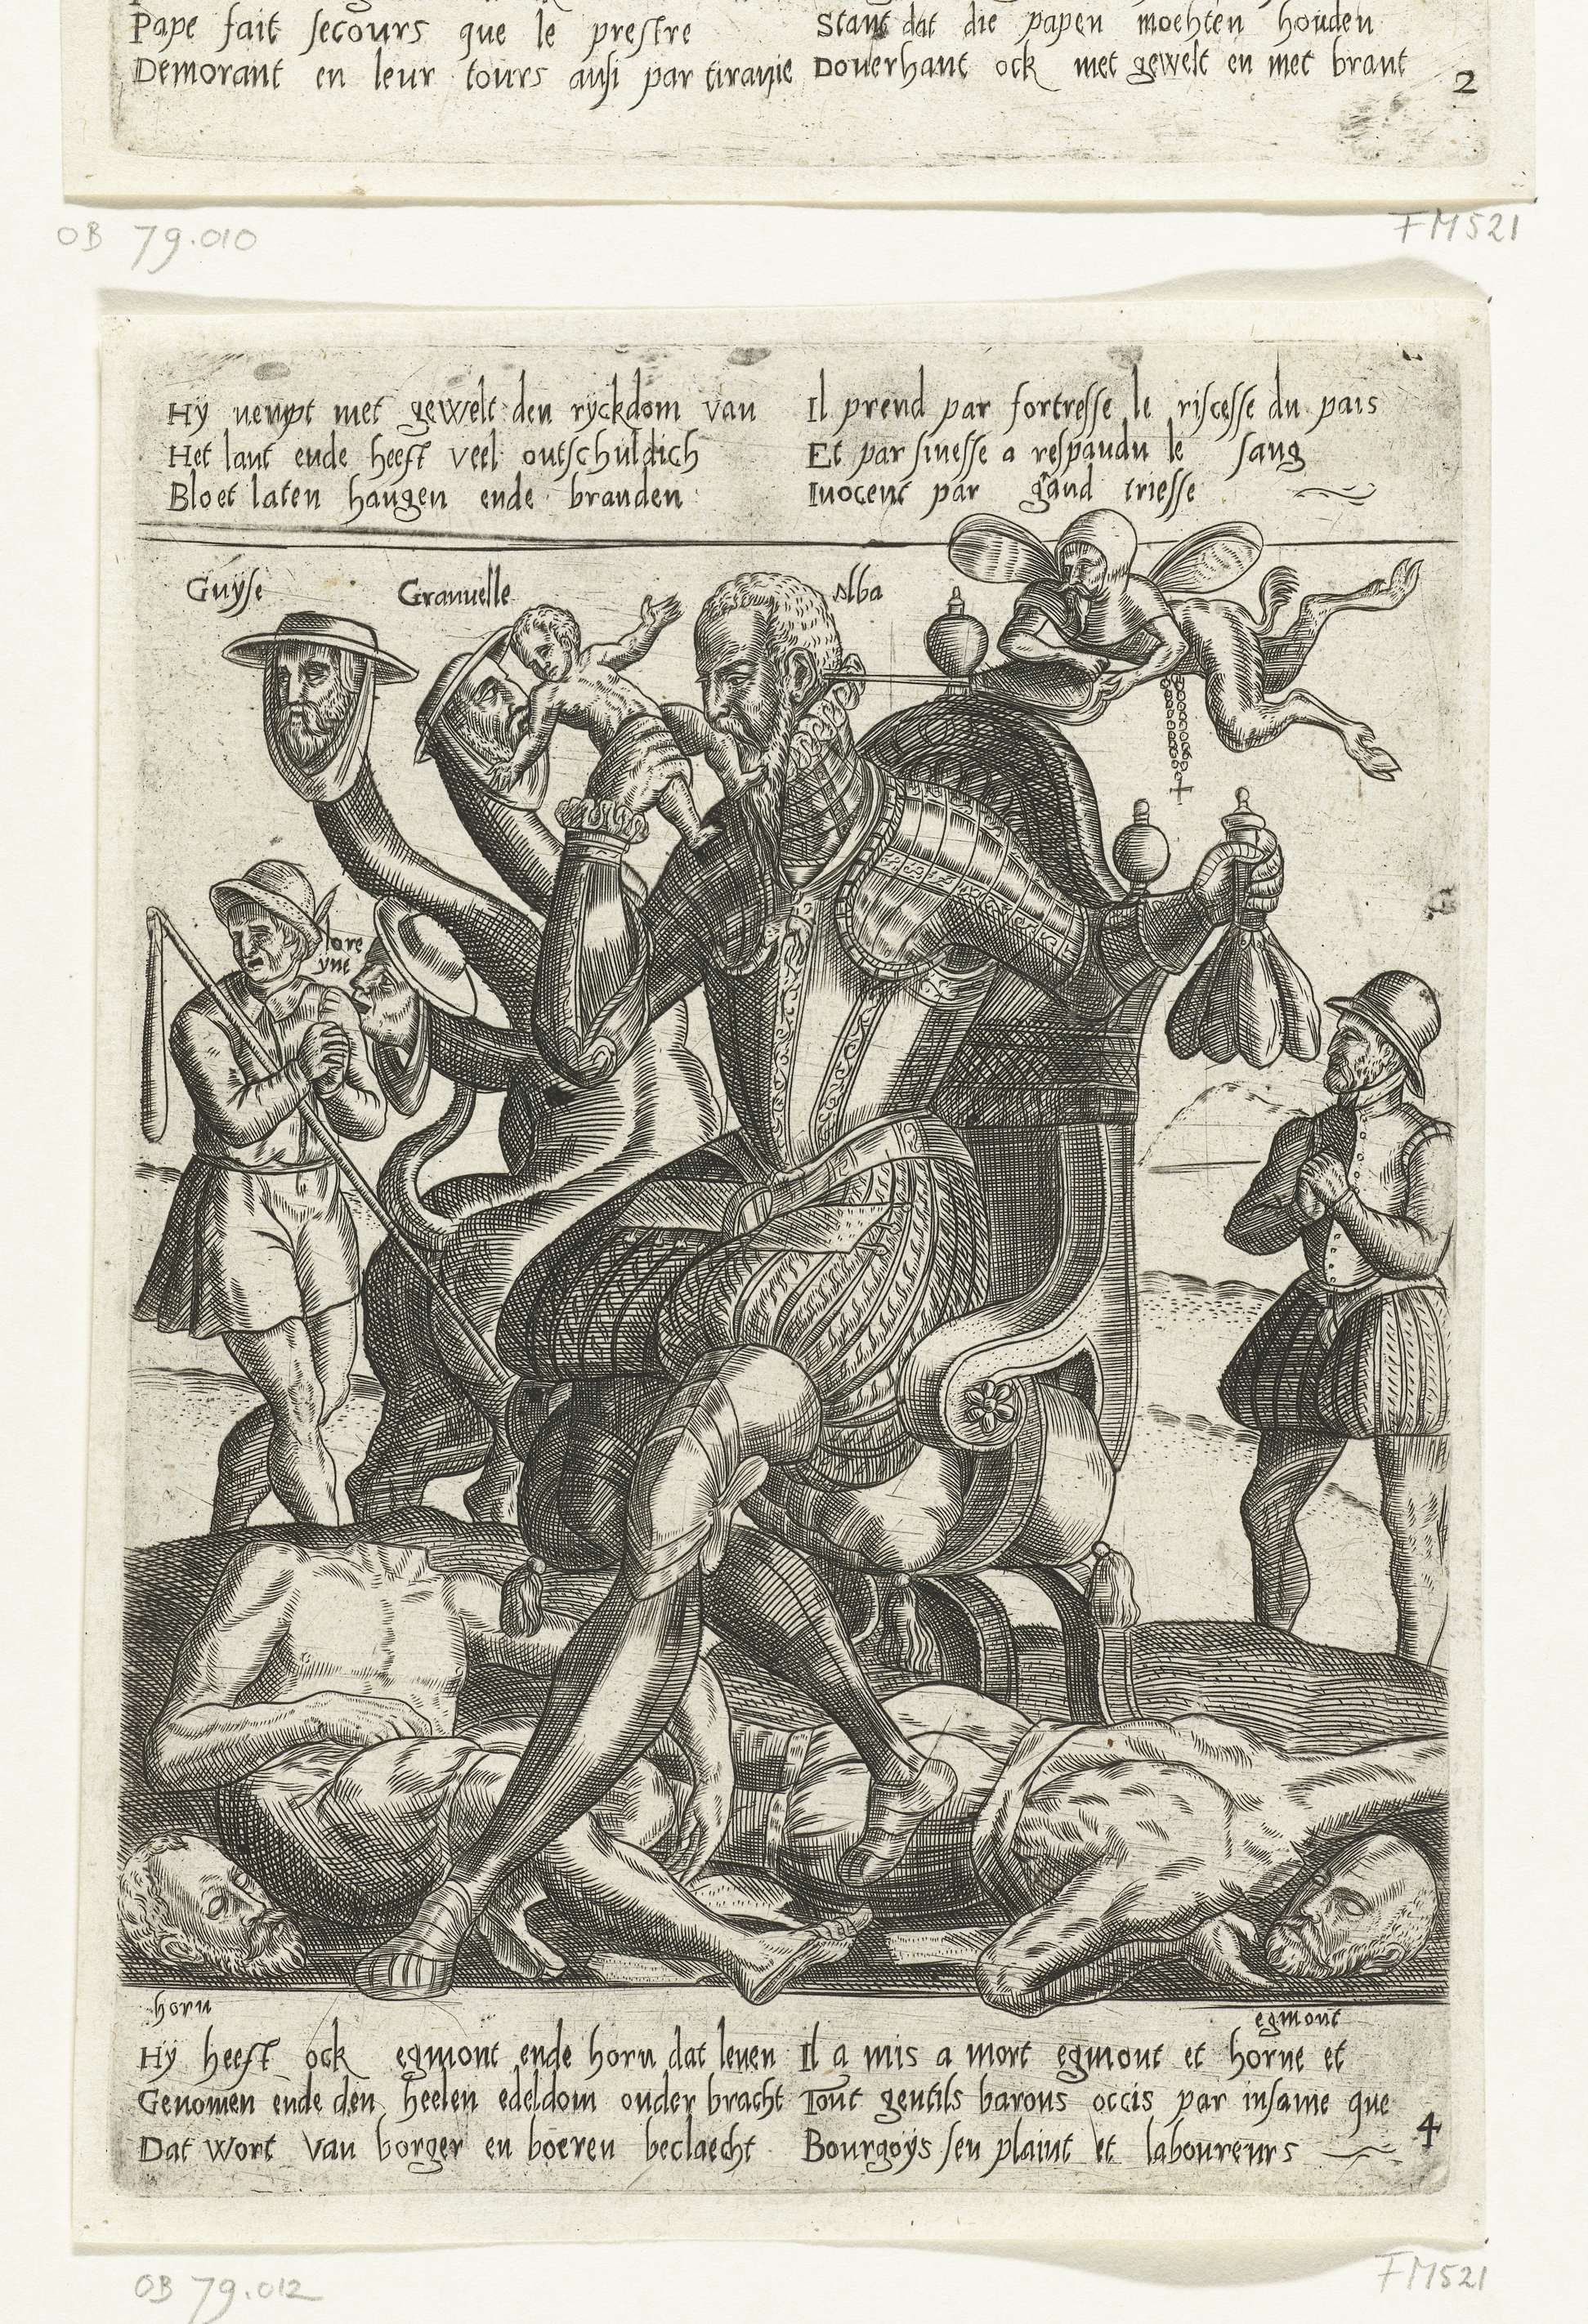 Pape fait secours que le prestre
Demorant en leur tours ausi par tiranie
Stant dat die papen mochten houden
Douerhant ock met gewelt en met brant
2
OB 79.010
FM521
Hÿ nempt met gewelt den ryckdom van
Het lant ende heeft veel ontschuldich
Bloet laten hangen ende branden
Il prend par fortresse le riscesse du pais
Et par finesse a respandu le sang
Inocent par gând triesse
Guÿse
Granuelle
Alba
lore
yne
horn
egmont
Hÿ heeft ock egmont ende horn dat leuen
Genomen ende den heelen edeldom onder bracht
Dat wort van borger en boeren beclaecht
Il a mis a mort egmont et horne et
Tout gentils barons occis par infamie que
Bourgoÿs sen plaint et laboureurs
4
OB 79.012
FM521